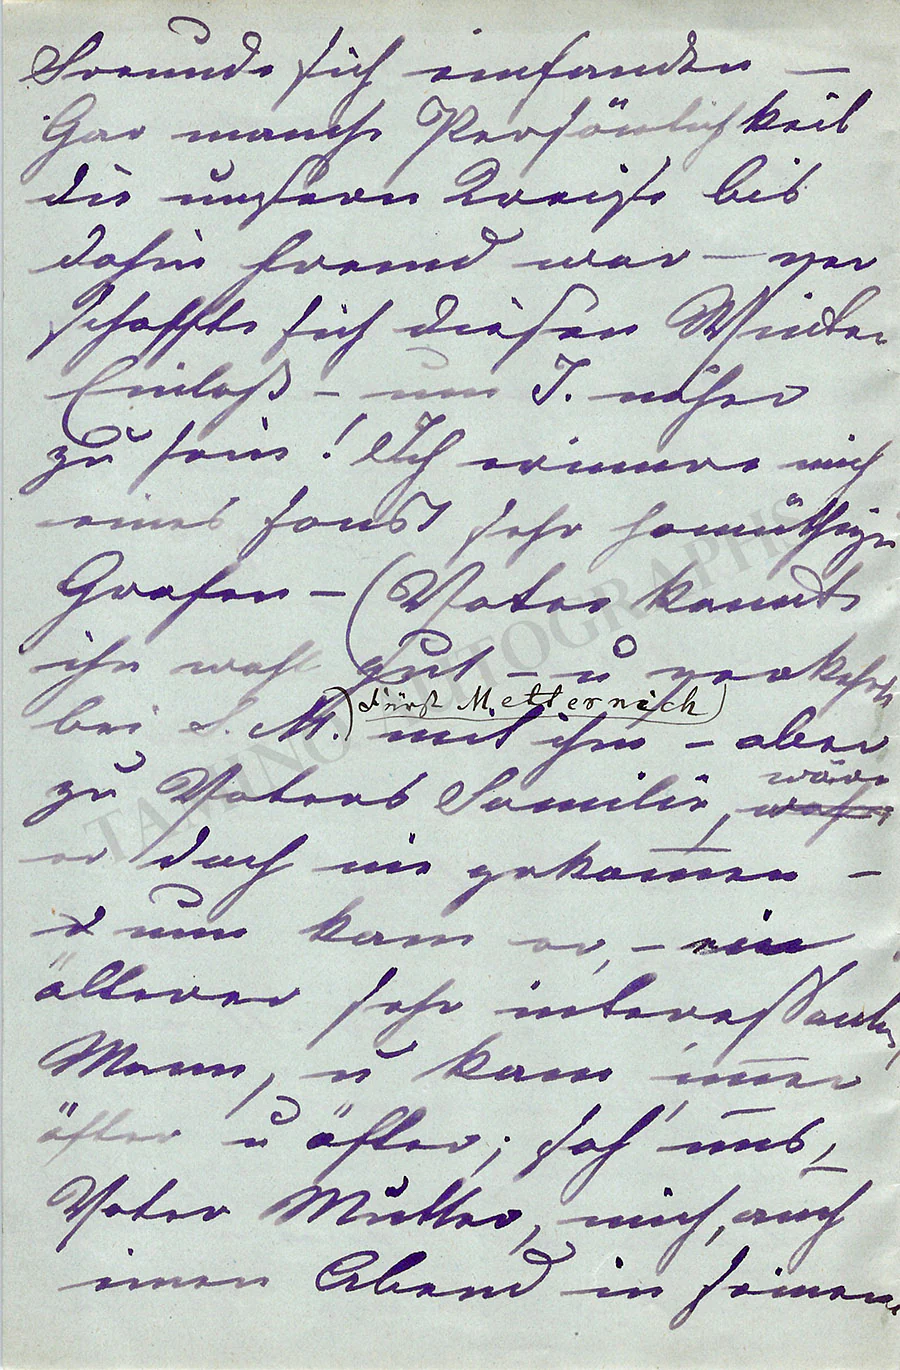 Freunde sich einfanden —
Gar manche Persönlichkeit
die unserm Kreise bis
dahin fremd war — ver
schaffte sich diesen Winter
Einlaß — um J. näher
zu sein! Ich erinnere mich
eines sonst sehr
Grafen — (Vater kannte
ihn wohl gut — u verkehrte
bei F. M.) (Fürst Metternich)
mit ihm — aber
zu Vaters Familie, wäre
er doch nie gekommen —
nun kam er, — ein
älterer sehr interessanter,
Mann, u kam immer
öfter u öfter; sah' uns,
Vater Mutter, mich, auch
einen Abend in seinem
TAMINO AUTOGRAPHS